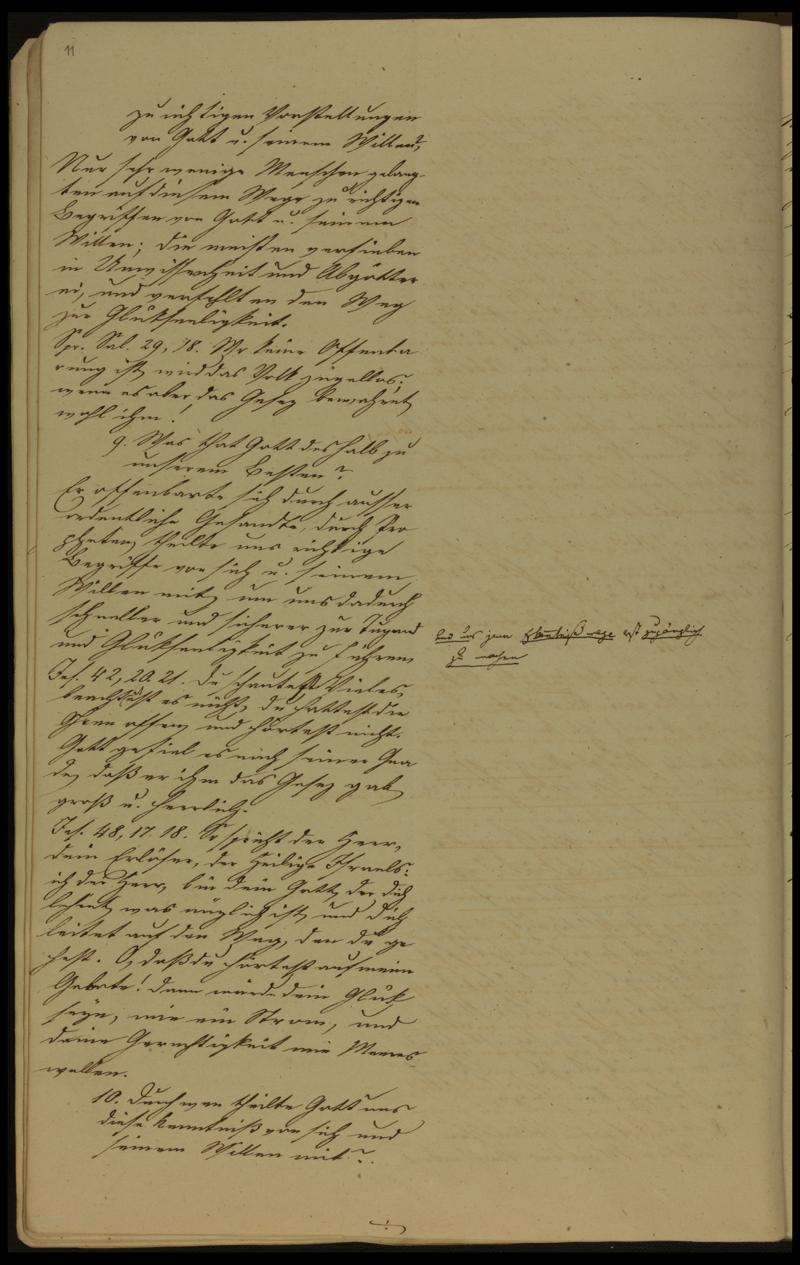 11
zu richtigen Vorstellungen
von Gott u. seinem Willen?
Nur sehr wenige Menschen gelang-
ten auf diesem Wege zu richtigen
Begriffen von Gott u. seinem
Willen; die meisten verfielen
in Unwissenheit und Abgötter
ei, und verfehlten den Weg
zur Glükseeligkeit.
Spr. Sal. 29, 18. Wo keine Offenba
rung ist, wird das Volk zügellos;
wenn es aber das Gesez bewahret,
wohl ihm!
9. Was that Gott deshalb zu
unserem Besten?
Er offenbarte sich durch ausser
ordentliche Gesandte, durch Pro
pheten, theilte uns richtige
Begriffe von sich u. seinem
Willen mit, um uns dadurch
schneller und sicherer zur Tugend
und Glükseeligkeit zu führen,
uns zum erst zugänglich
zu machen
Jes. 42, 20. 21. Du schautest Vieles,
beachtest es nicht, du hattest die
Ohren offen, und hörtest nicht.
Gott gefiel es nach seiner Gna
de, daß er ihm das Gesez gab
groß u. herrlich.
Jes. 48, 17. 18. So spricht der Herr,
dein Erlöser, der Heilige Israels:
ich der Herr, bin dein Gott, der dich
lehret, was nüzlich ist, und dich
leitet auf den Weg, den du ge
hest. O, daß du hörtest auf meine
Gebote! dann würde dein Glük
seyn, wie ein Strom, und
deine Gerechtigkeit wie Meeres
wellen.
10. Durch wen theilte Gott uns
diese Kenntniß von sich und
seinem Willen mit?